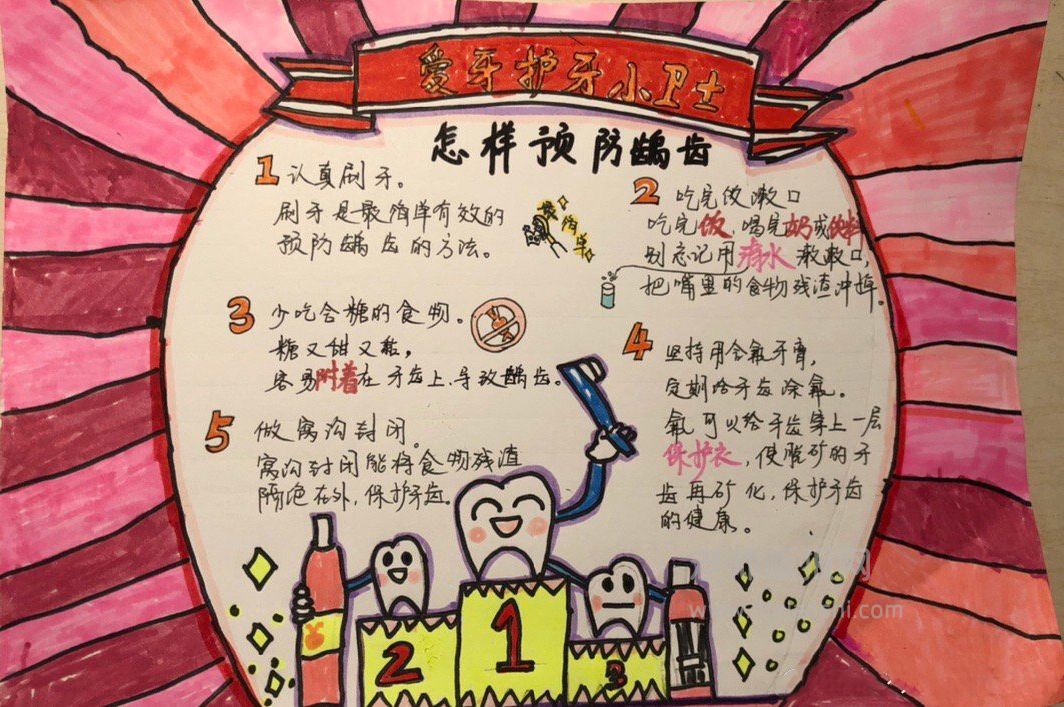 爱牙护牙小卫士
怎样预防龋齿
1 认真刷牙。
刷牙是最简单有效的
预防龋齿的方法。
最简单
2 吃完饭漱口
吃完饭,喝完奶或饮料
别忘记用清水漱漱口,
把嘴里的食物残渣冲掉。
3 少吃含糖的食物。
糖又甜又粘,
容易附着在牙齿上,导致龋齿。
4 坚持用含氟牙膏,
定期给牙齿涂氟。
氟可以给牙齿穿上一层
保护衣,使脱矿的牙
齿再矿化,保护牙齿
的健康。
5 做窝沟封闭。
窝沟封闭能将食物残渣
隔绝在外,保护牙齿。
2
1
3